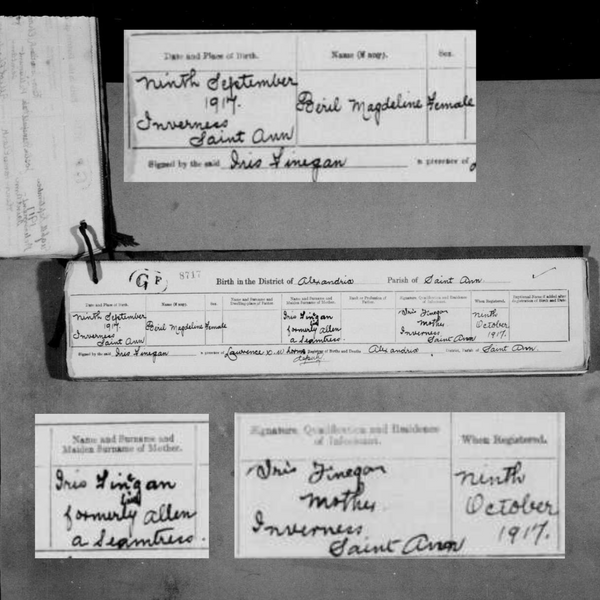 Date and Place of Birth. Name (if any). Sex.
Ninth September
1917.
Inverness
Saint Ann
Beril Magdeline Female
Signed by the said Iris Finegan in presence of
G F 8717 Birth in the District of Alexandria Parish of Saint Ann
Date and Place of Birth. Name (if any). Sex. Name and Surname and Dwelling-place of Father. Name and Surname and Maiden Surname of Mother. Rank or Profession of Father. Signature, Qualification and Residence of Informant. When Registered.
Ninth September
1917.
Inverness
Saint Ann
Beril Magdeline Female
Iris Finegan
formerly Allen
a Seamtress.
Iris Finegan
Mother
Inverness
Saint Ann
Ninth
October
1917.
Signed by the said Iris Finegan in presence of Lawrence Registrar of Births and Deaths Alexandria Parish of Saint Ann.
Name and Surname and
Maiden Surname of Mother.
Iris Finegan
formerly Allen
a Seamtress.
Signature, Qualification and Residence
of Informant.
When Registered.
Iris Finegan
Mother
Inverness
Saint Ann
Ninth
October
1917.